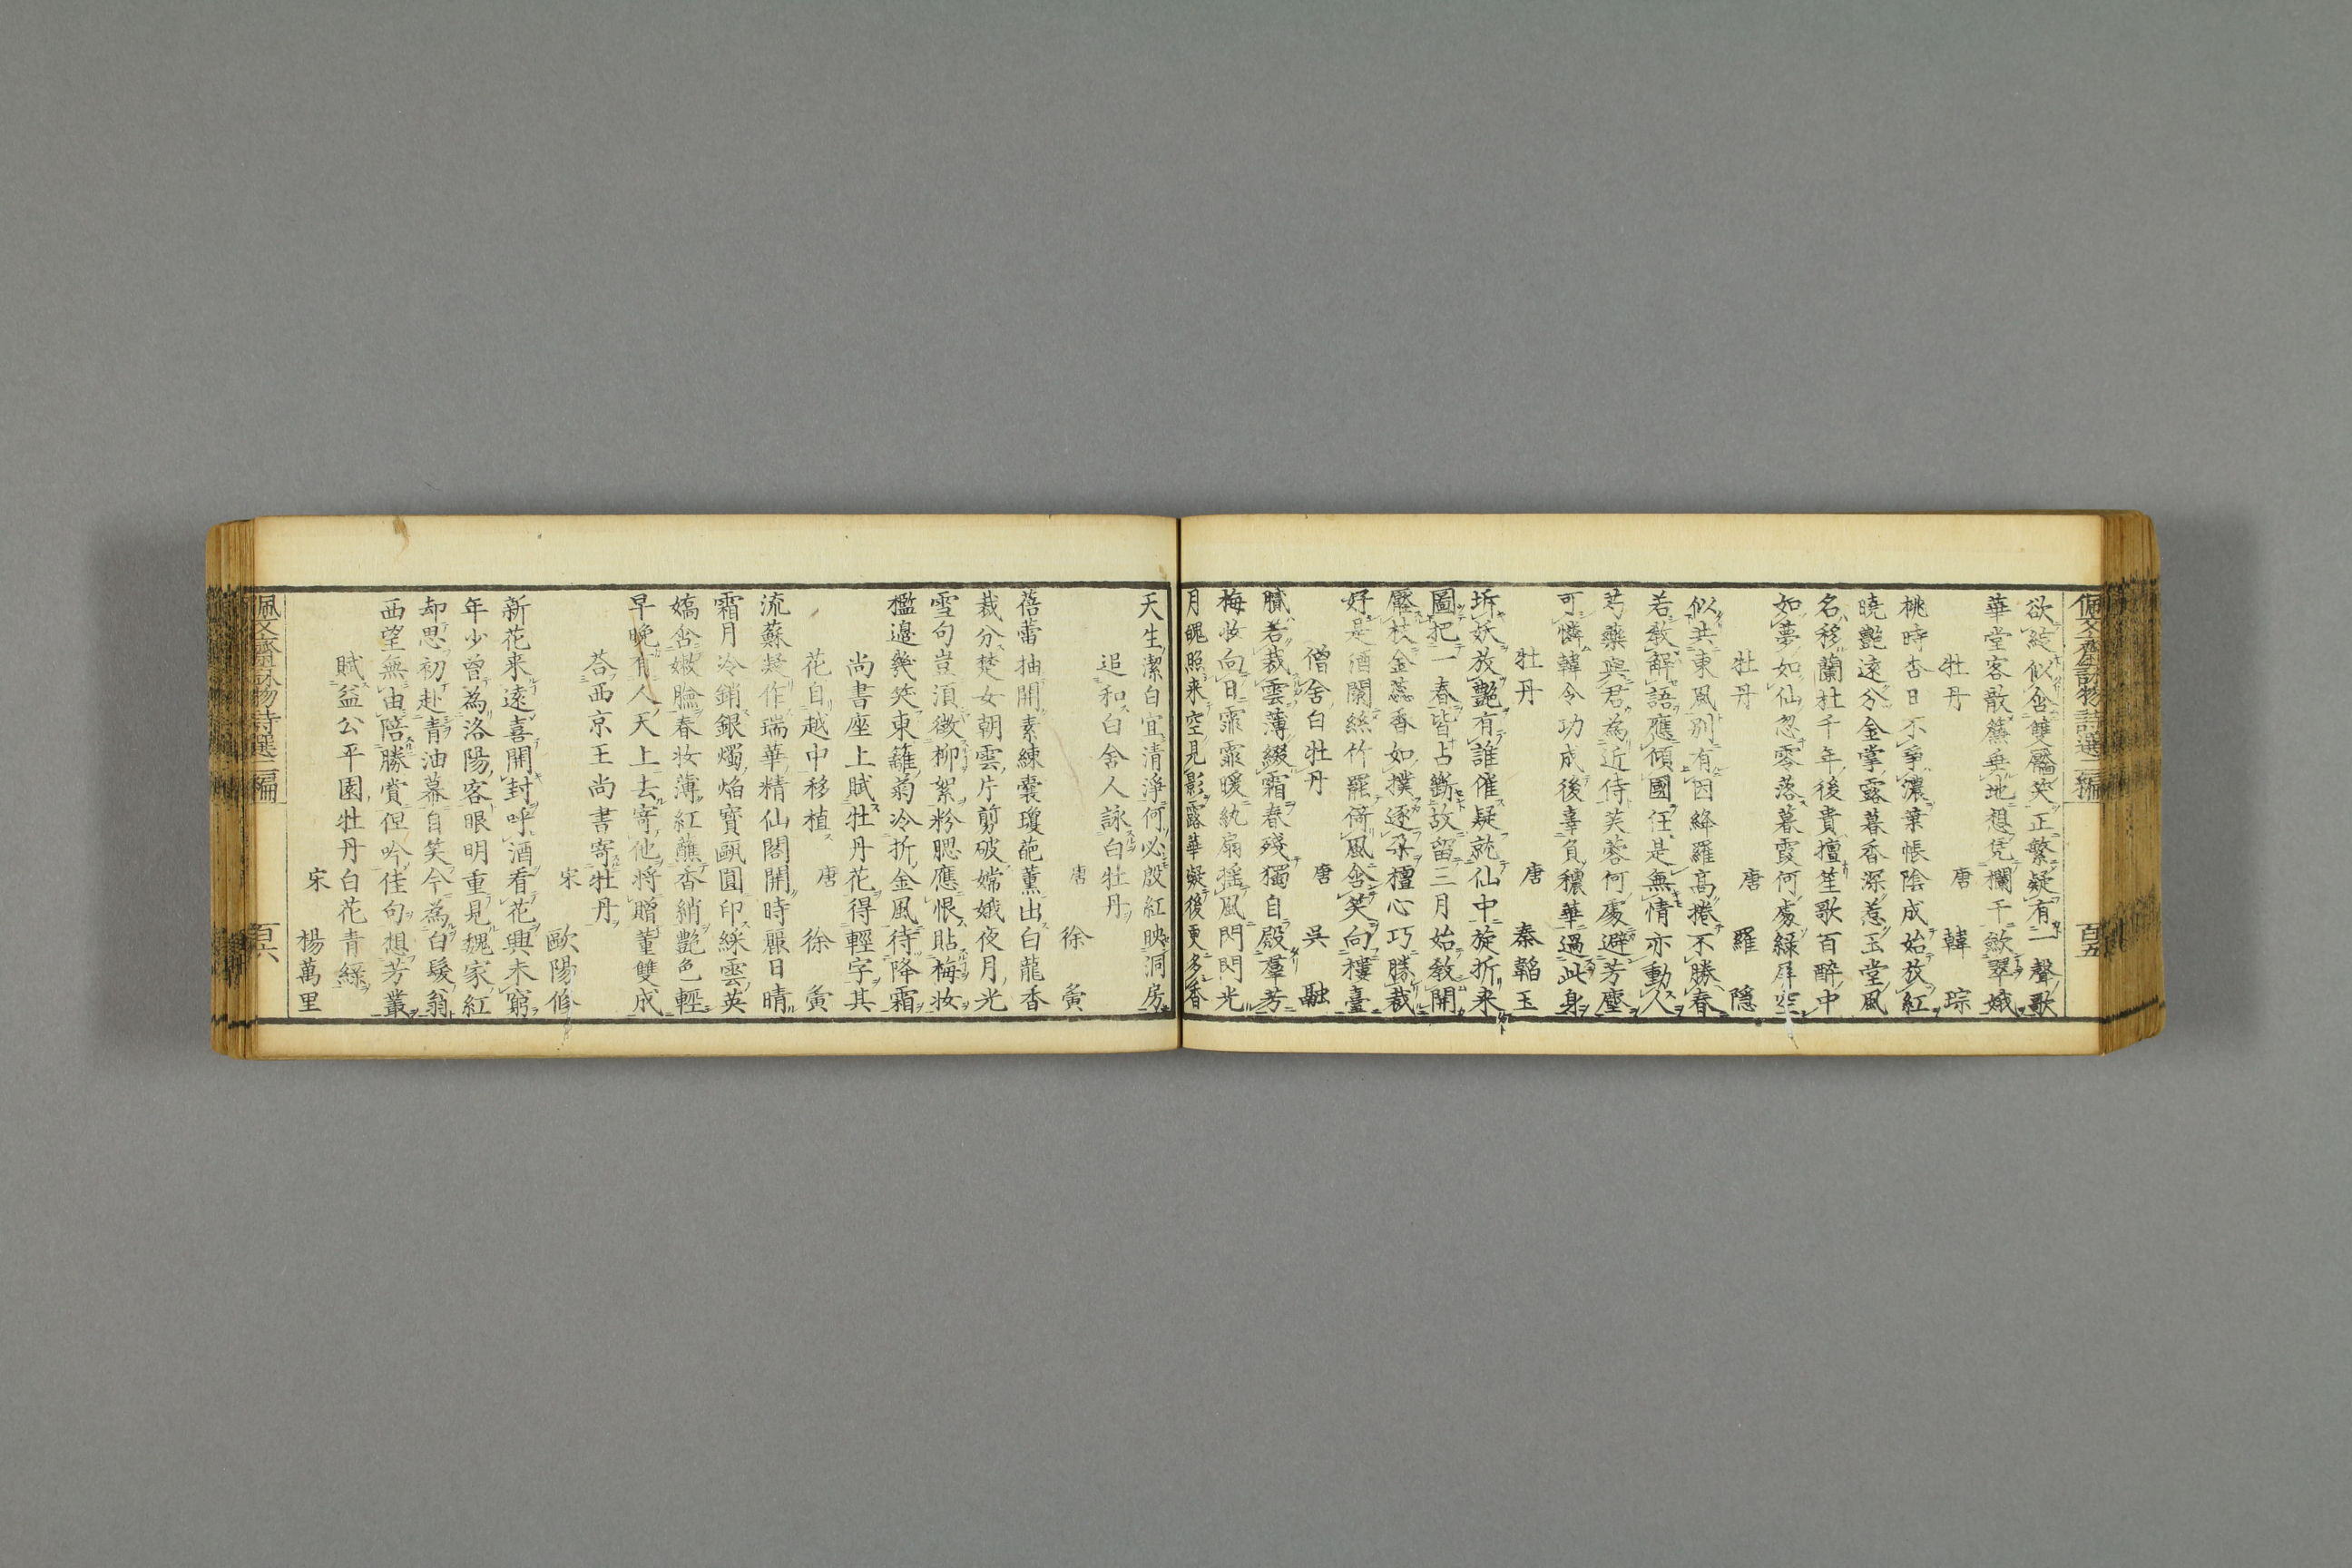 佩文齋詠物詩選二編
百五
欲綻似含雙靨笑正繁疑有一聲歌
華堂客散簾垂地想凭欄干斂翠蛾
牡丹 唐 韓琮
桃時杏日不爭濃葉帳陰成始放紅
曉艷遠分金掌露暮香深惹玉堂風
名移蘭杜千年後貴擅笙歌百醉中
如夢如仙忽零落暮霞何處綠屏空
牡丹 唐 羅隱
似共東風別有因絳羅高捲不勝春
若教解語應傾國任是無情亦動人
芍藥與君為近侍芙蓉何處避芳塵
可憐韓令功成後辜負穠華過此身
牡丹 唐 秦韜玉
坼妖放艷有誰催疑就仙中旋折来
圖把一春皆占斷故留三月始教開
壓枝金蕊香如撲逐朶檀心巧勝裁
好是酒闌絲竹罷倚風含笑向樓臺
僧舍白牡丹 唐 吳融
膩若裁雲薄綴霜春殘獨自殿羣芳
梅妝向日霏霏暖紈扇摇風閃閃光
月魄照来空見影露華凝後更多香
天生潔白宜清淨何必殷紅映洞房
追和白舍人詠白牡丹
唐 徐夤
蓓蕾抽開素練囊瓊葩薰出白龍香
裁分楚女朝雲片剪破嫦娥夜月光
雪句豈須徵柳絮粉腮應恨貼梅妝
檻邊幾笑東籬菊冷折金風待降霜
尚書座上賦牡丹花得輕字其
花自越中移植 唐 徐夤
流蘇凝作瑞華精仙閣開時麗日晴
霜月冷銷銀燭焰寶甌圓印綵雲英
嬌含嫩臉春妝薄紅蘸香綃艷色輕
早晚有人天上去寄他将贈董雙成
荅西京王尚書寄牡丹
宋 歐陽脩
新花来遠喜開封呼酒看花興未窮
年少曾為洛陽客眼明重見魏家紅
却思初赴青油幕自笑今為白髮翁
西望無由陪勝賞但吟佳句想芳叢
賦益公平園牡丹白花青緣
宋 楊萬里
佩文齋詠物詩選二編
百六